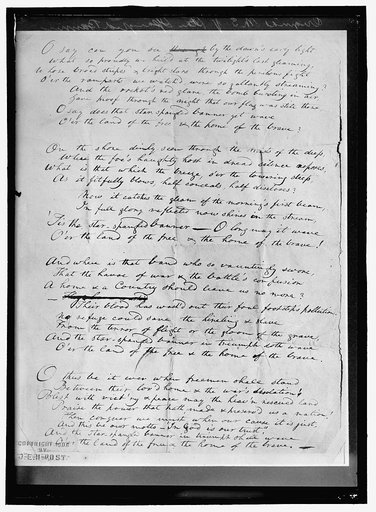 O say can you see through by the dawn's early light
What so proudly we hail'd at the twilight's last gleaming,
Whose broad stripes & bright stars through the perilous fight
O'er the ramparts we watch'd were so gallantly streaming?
And the rocket's red glare, the bomb bursting in air
Gave proof through the night that our flag was still there
O say does that star-spangled banner yet wave
O'er the land of the free & the home of the brave?
On the shore dimly seen through the mists of the deep,
Where the foe's haughty host in dread silence reposes,
What is that which the breeze, o'er the towering steep,
As it fitfully blows, half conceals, half discloses?
Now it catches the gleam of the morning's first beam,
In full glory reflected now shines in the stream,
'Tis the star-spangled banner — O long may it wave
O'er the land of the free & the home of the brave!
And where is that band who so vauntingly swore,
That the havoc of war & the battle's confusion
A home & a Country should leave us no more?
— Their blood has wash'd out their foul footstep's pollution
No refuge could save the hireling & slave
From the terror of flight or the gloom of the grave,
And the star-spangled banner in triumph doth wave
O'er the land of the free & the home of the brave.
O thus be it ever when freemen shall stand
Between their lov'd home & the war's desolation!
Blest with vict'ry & peace may the heav'n rescued land
Praise the power that hath made & preserv'd us a nation!
Then conquer we must, when our cause it is just,
And this be our motto — "In God is our trust,"
And the star-spangled banner in triumph shall wave
O'er the land of the free & the home of the brave. —
COPYRIGHT
BY
J.E.H. POST.